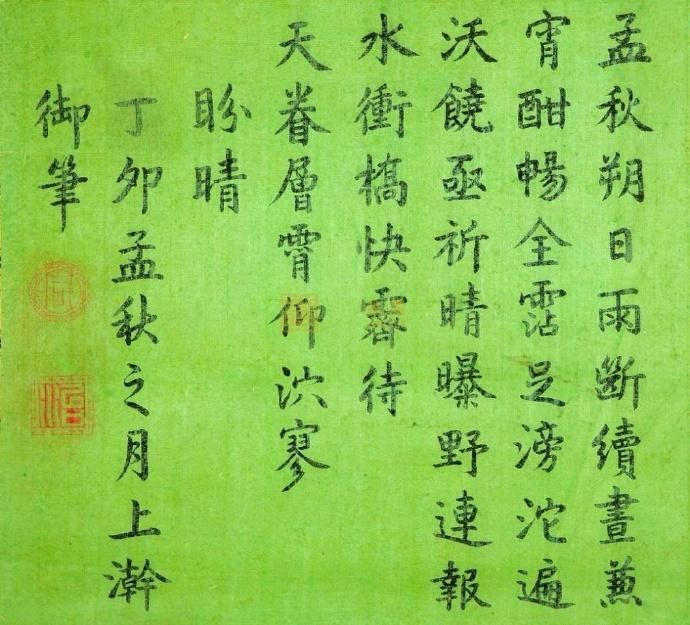 孟秋朔日雨斷續晝兼
宵酣暢全霑足滂沱遍
沃饒亟祈晴曝野連報
水衝橋快霽待
天眷層霄仰泬寥
盼晴
丁卯孟秋之月上澣
御筆